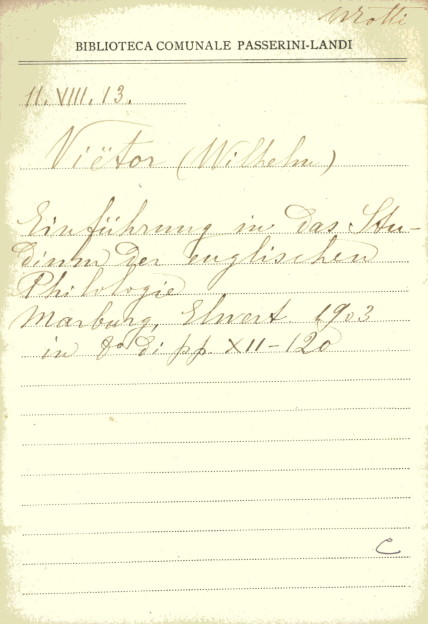 BIBLIOTECA COMUNALE PASSERINI-LANDI
11. VIII. 13.
Viëtor (Wilhelm)
Einführung in das Stu-
dium der englischen
Philologie
Marburg, Elwert 1903
in 8° di pp XII-120
C